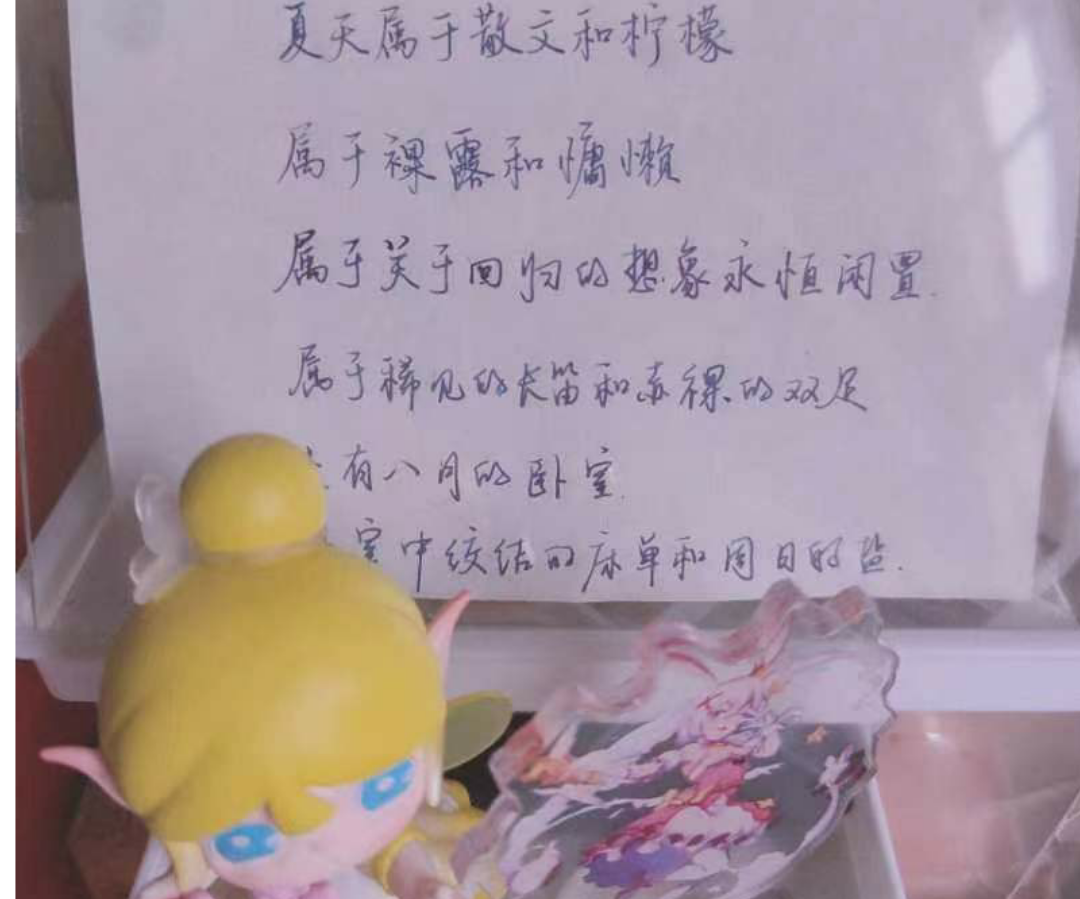 夏天属于散文和柠檬
属于裸露和慵懒
属于关于回归的想象永恒闲置.
属于稀见的长笛和赤裸的双足
有八月的卧室.
室中绞结的床单和周日的盐.